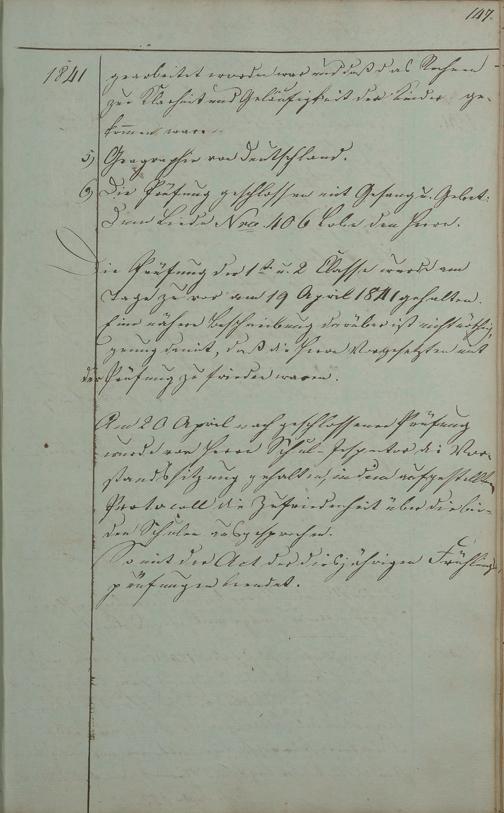 147.
1841
gearbeitet worden war und daß das Rechnen
zur Klarheit und Geläufigkeit der Kinder ge-
kommen ware.
5) Geographie von Deutschland.
6) Die Prüfung geschlossen mit Gesang u. Gebet.
Dem Liede Nro. 406 Lobe den Herrn.
Die Prüfung der 1ten u. 2 Classe wurde am
Tage zu vor am 19 April 1841 gehalten.
Eine nähere Beschreibung darüber ist nicht nöthig,
genug damit, daß die Herrn Vorgesetzten mit
der Prüfung zufrieden waren.
Am 20 April nach geschlossener Prüfung
wurde von Herrn Schul-Inspector die Vor-
standssitzung gehalten, in dem aufgestellten
Protocoll die Zufriedenheit über die bei-
den Schulen ausgesprochen.
Somit der Act der diesjährigen Frühlings-
prüfungen beendet.